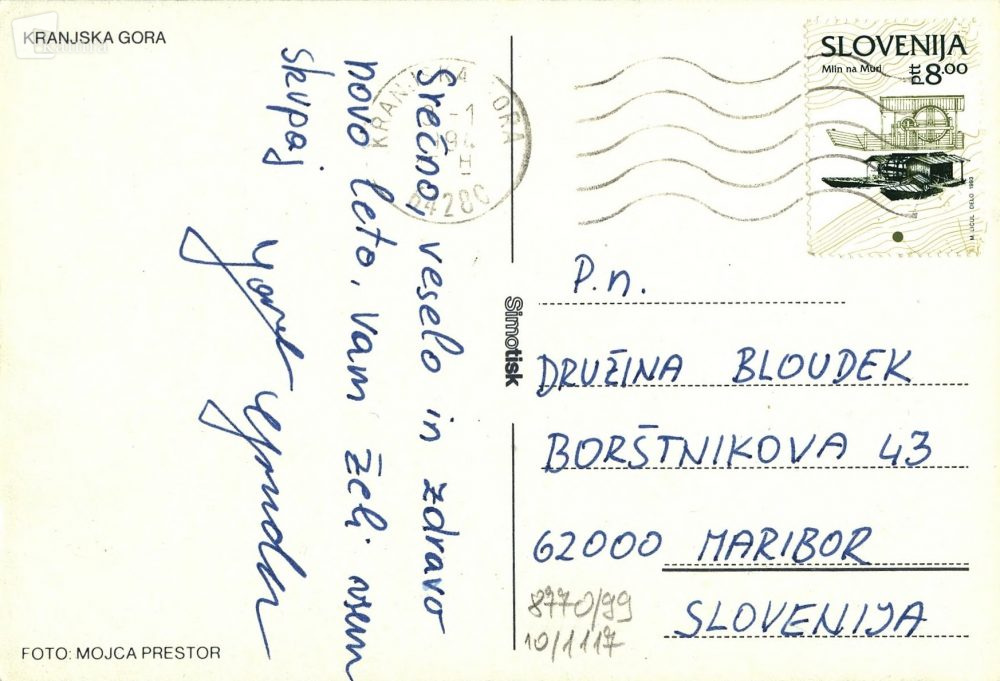 KRANJSKA GORA
Srečno, veselo in zdravo
novo leto, vam želi vsem
skupaj
KRANJSKA GORA
-1
94
64280
SLOVENIJA
Mlin na Muri
ptt 8.00
M. LICUL DELO 1993
P.n.
DRUŽINA BLOUDEK
BORŠTNIKOVA 43
62000 MARIBOR
SLOVENIJA
8770/99
10/1117
Simotisk
FOTO: MOJCA PRESTOR